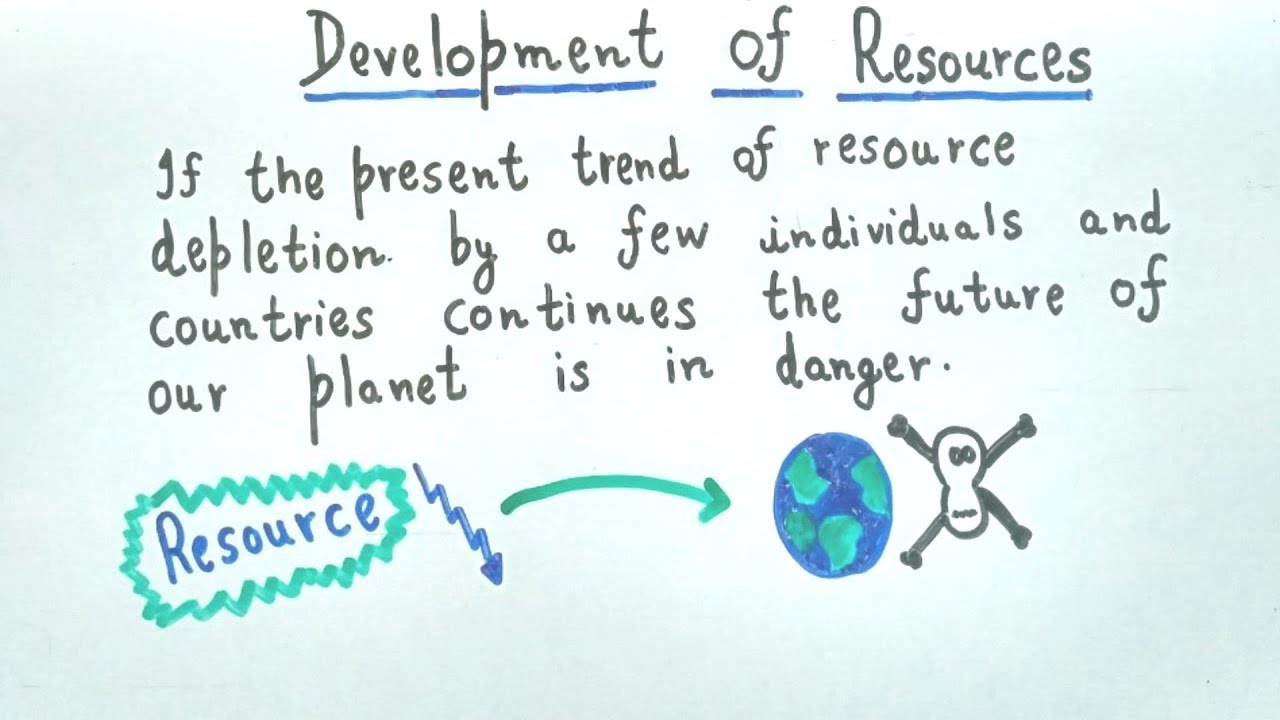 Development of Resources
If the present trend of resource
depletion. by a few individuals and
countries continues the future of
our planet is in danger.
Resource